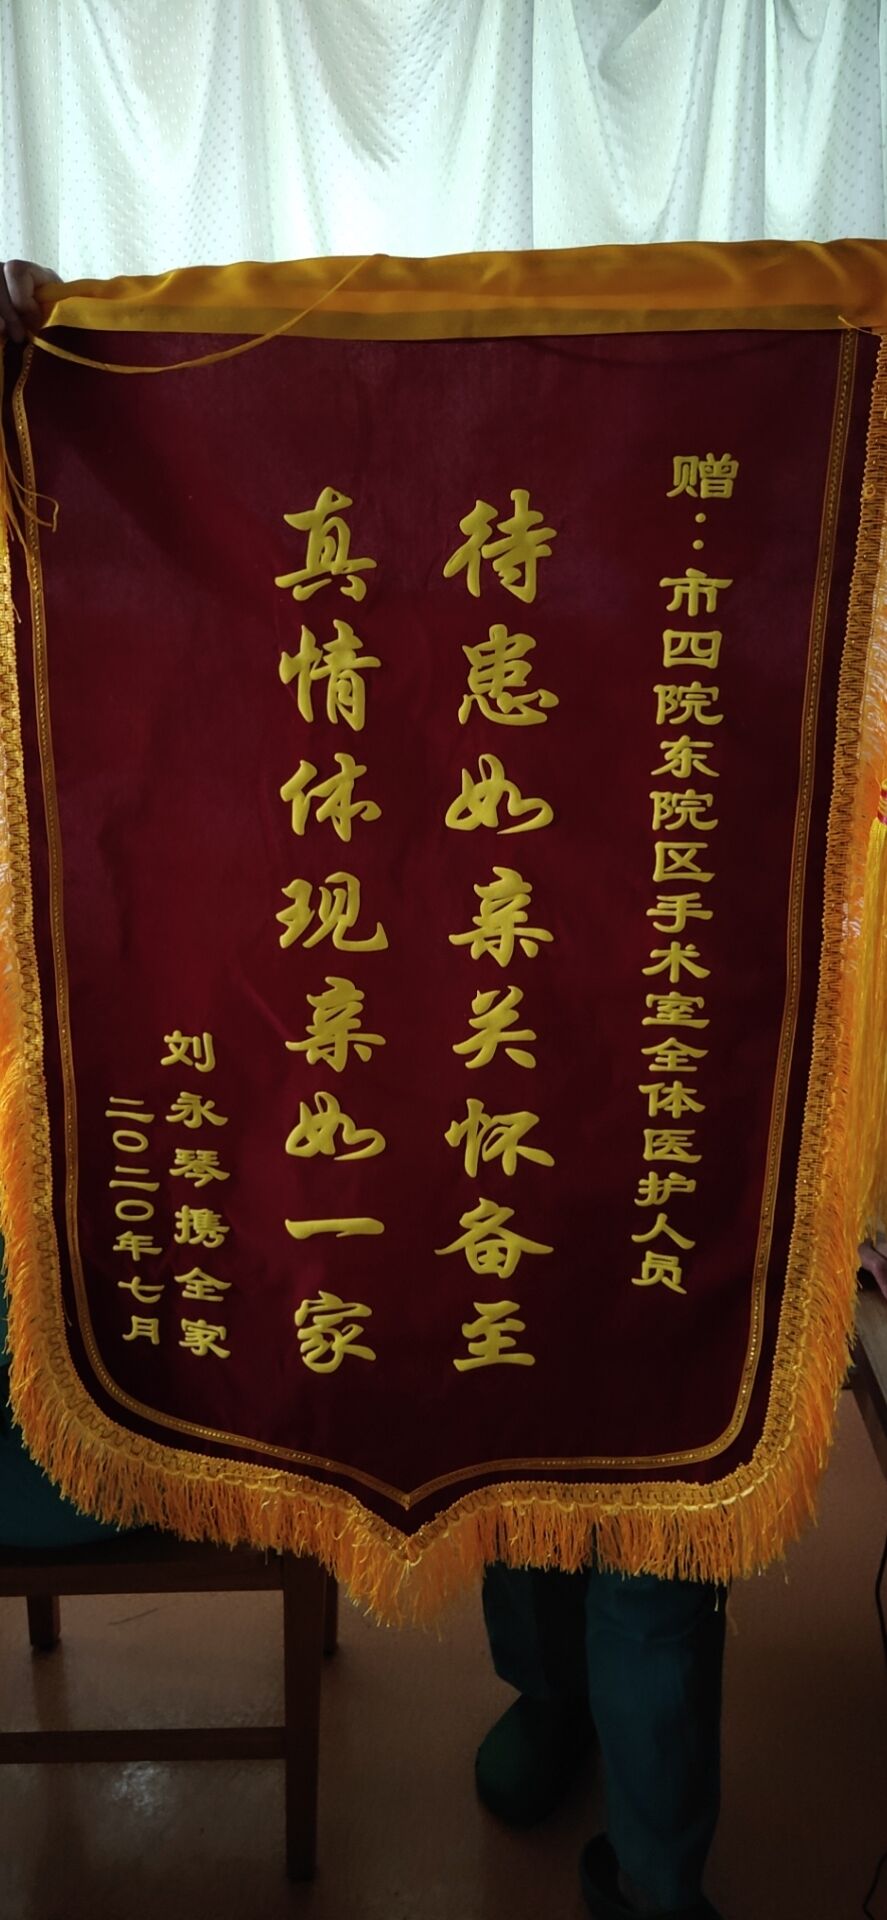 赠：市四院东院区手术室全体医护人员
待患如亲关怀备至
真情体现亲如一家
刘永琴携全家
二〇二〇年七月